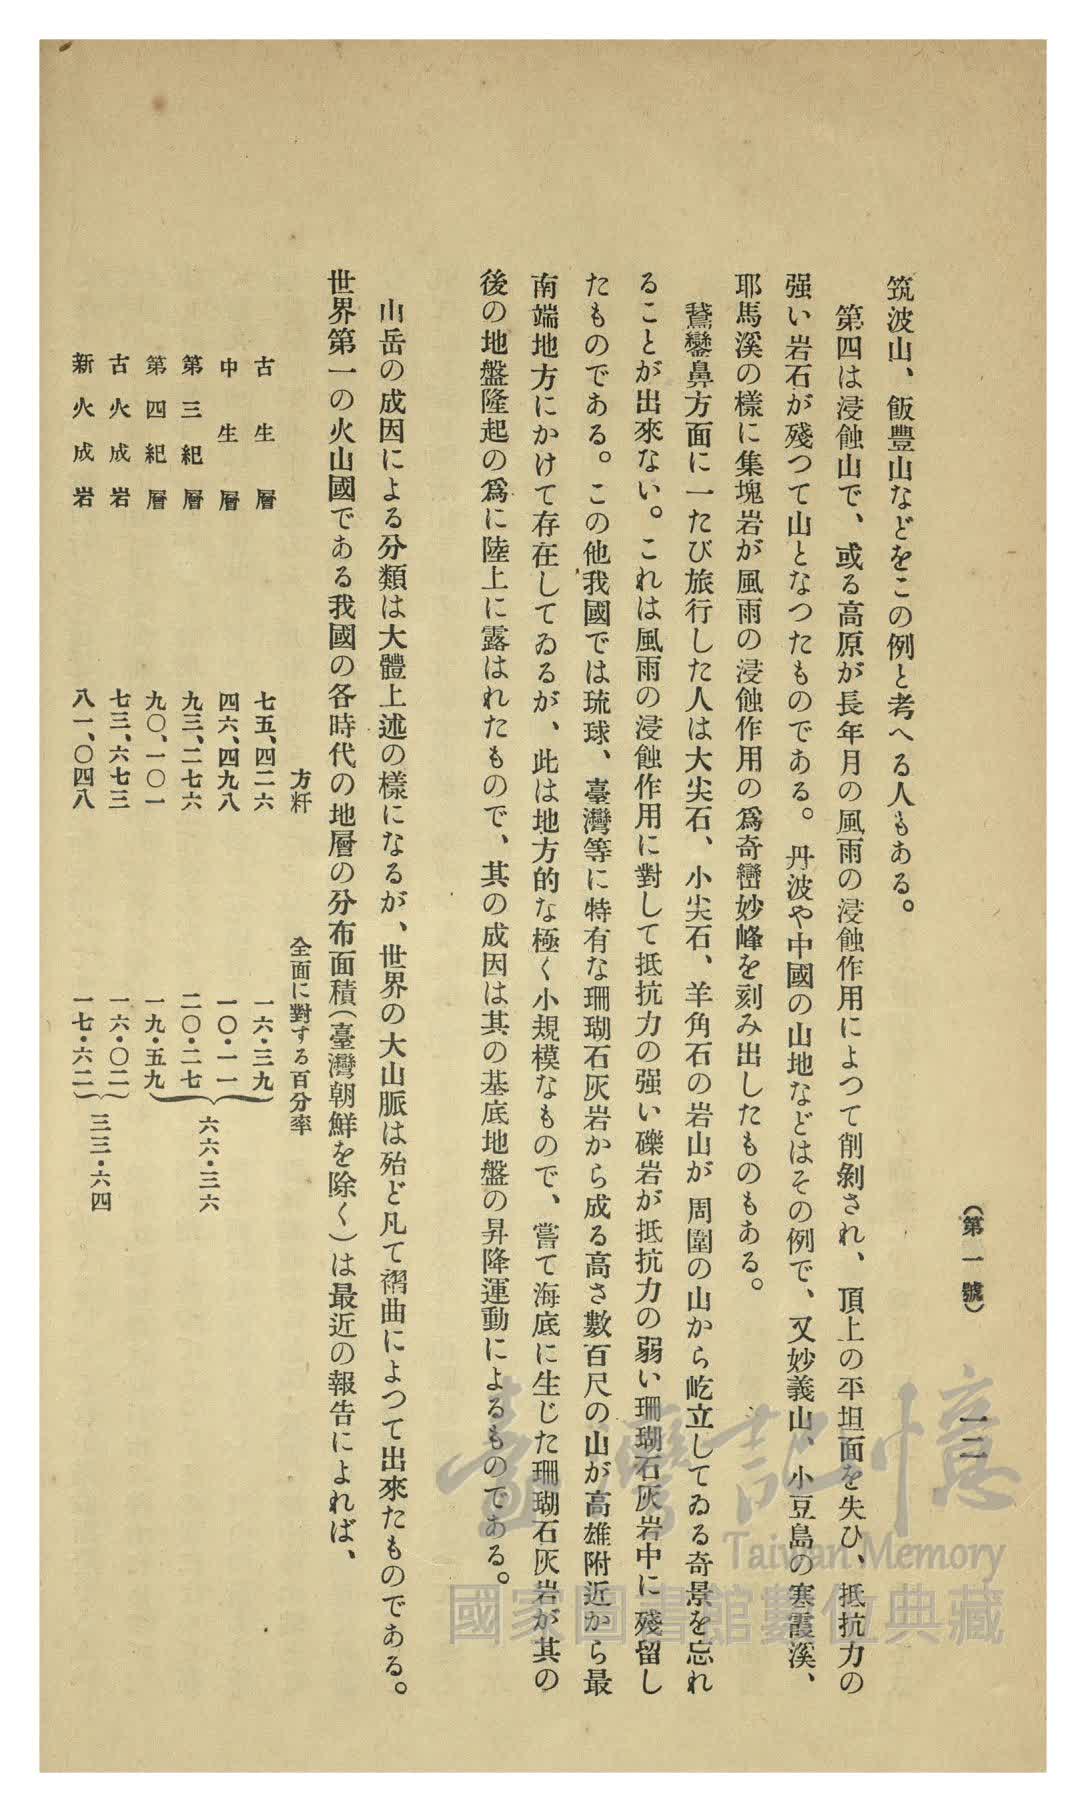 （第一號）　一二
筑波山、飯豐山などをこの例と考へる人もある。
第四は浸蝕山で、或る高原が長年月の風雨の浸蝕作用によつて削剝され、頂上の平坦面を失ひ、抵抗力の
强い岩石が殘つて山となつたものである。丹波や中國の山地などはその例で、又妙義山、小豆島の寒霞溪、
耶馬溪の樣に集塊岩が風雨の浸蝕作用の爲奇巒妙峰を刻み出したものもある。
鵞鑾鼻方面に一たび旅行した人は大尖石、小尖石、羊角石の岩山が周圍の山から屹立してゐる奇景を忘れ
ることが出來ない。これは風雨の浸蝕作用に對して抵抗力の强い礫岩が抵抗力の弱い珊瑚石灰岩中に殘留し
たものである。この他我國では琉球、臺灣等に特有な珊瑚石灰岩から成る高さ數百尺の山が高雄附近から最
南端地方にかけて存在してゐるが、此は地方的な極く小規模なもので、嘗て海底に生じた珊瑚石灰岩が其の
後の地盤隆起の爲に陸上に露はれたもので、其の成因は其の基底地盤の昇降運動によるものである。
山岳の成因による分類は大體上述の樣になるが、世界の大山脈は殆ど凡て褶曲によつて出來たものである。
世界第一の火山國である我國の各時代の地層の分布面積（臺灣朝鮮を除く）は最近の報告によれば、
方粁　全面に對する百分率
古生層　七五、四二六　一六・三九
中生層　四六、四九八　一〇・一一
第三紀層　九三、二七六　二〇・二七
第四紀層　九〇、一〇一　一九・五九
六六・三六
古火成岩　七三、六七三　一六・〇二
新火成岩　八一、〇四八　一七・六二
三三・六四
臺灣記憶
Taiwan Memory
國家圖書館數位典藏